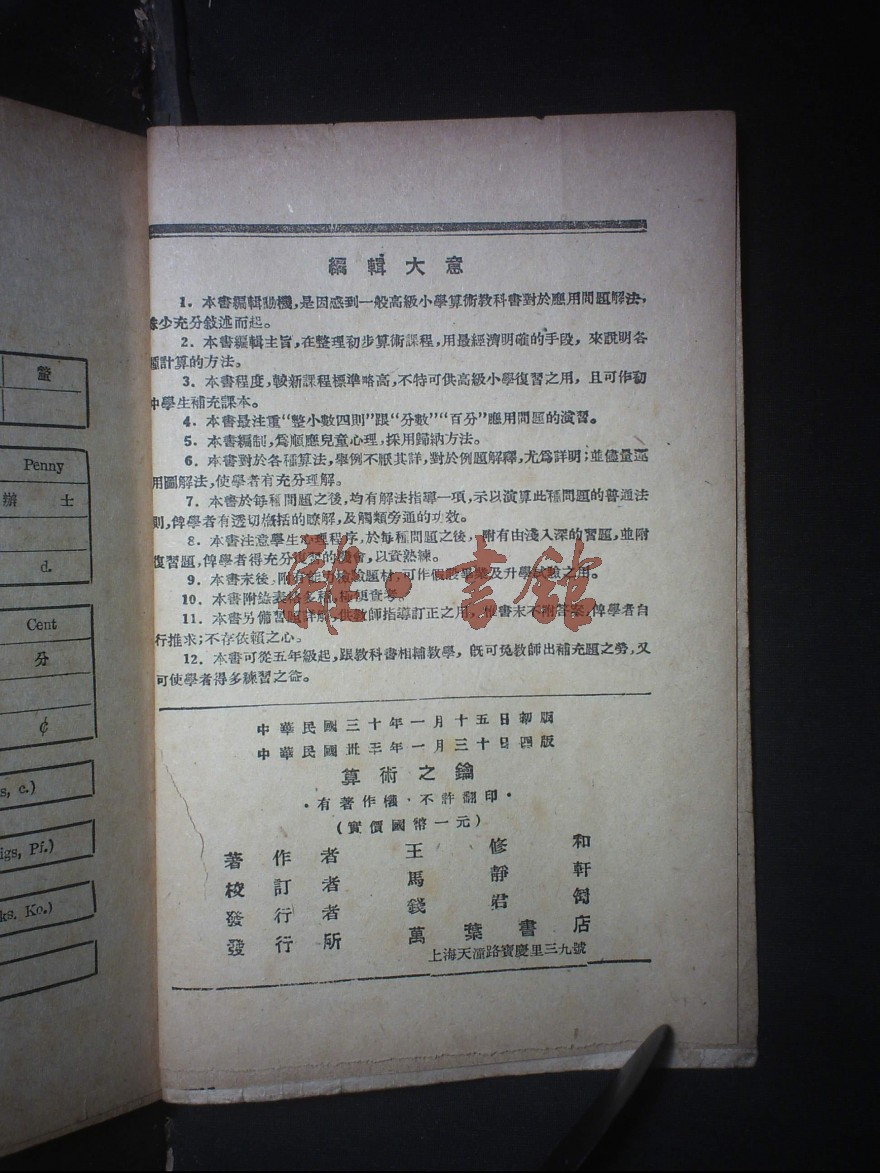 螫
Penny
辦 士
d.
Cent
分
¢
s, c.)
igs, Pf.)
ks. Ko.)
編輯大意
1. 本書編輯動機,是因感到一般高級小學算術教科書對於應用問題解法,
缺少充分敍述而起。
2. 本書編輯主旨,在整理初步算術課程,用最經濟明確的手段,來說明各
種計算的方法。
3. 本書程度,較新課程標準略高,不特可供高級小學復習之用,且可作初
中學生補充課本。
4. 本書最注重“整小數四則”跟“分數”“百分”應用問題的演習。
5. 本書編制,爲順應兒童心理,採用歸納方法。
6. 本書對於各種算法,舉例不厭其詳,對於例題解釋,尤爲詳明;並儘量運
用圖解法,使學者有充分理解。
7. 本書於每種問題之後,均有解法指導一項,示以演算此種問題的普通法
則,俾學者有透切概括的瞭解,及觸類旁通的功效。
8. 本書注意學生心理程序,於每種問題之後,附有由淺入深的習題,並附
復習題,俾學者得充分復習的機會,以資熟練。
9. 本書末後,附有能力檢驗題材,可作假設畢業及升學試驗之用。
10. 本書附錄表格多種,極便查考。
11. 本書另備習題詳解,供教師指導訂正之用,惟書末不附答案,俾學者自
行推求;不存依賴之心。
12. 本書可從五年級起,跟教科書相輔教學,旣可免教師出補充題之勞,又
可使學者得多練習之益。
中華民國三十年一月十五日初版
中華民國卅三年一月三十日四版
算術之鑰
·有著作權·不許翻印·
(實價國幣一元)
著作者 王修和
校訂者 馬靜軒
發行者 錢君匋
發行所 萬葉書店
上海天潼路寶慶里三九號
雜·書館